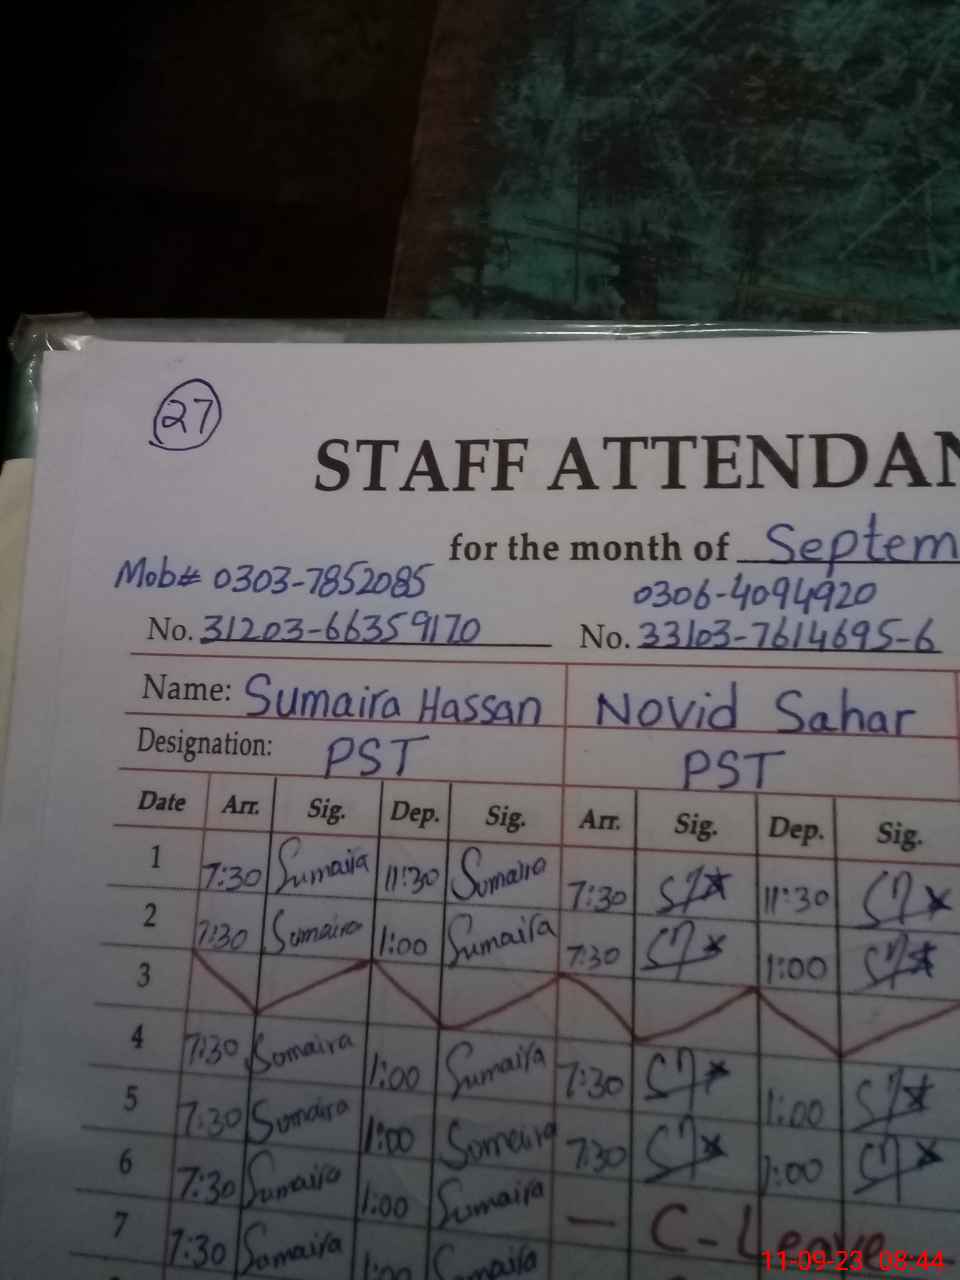 27
STAFF ATTENDAN
for the month of Septem
Mob# 0303-7852085 0306-4094920
No. 31203-66359170 No. 33103-7614695-6
Name: Sumaira Hassan Novid Sahar
Designation: PST PST
Date Arr. Sig. Dep. Sig. Arr. Sig. Dep. Sig.
1 7:30 Sumaira 11:30 Sumaira 7:30 11:30
2 7:30 Sumaira 1:00 Sumaira 7:30 1:00
3
4 7:30 Sumaira 1:00 Sumaira 7:30 1:00
5 7:30 Sumaira 1:00 Sumaira 7:30 1:00
6 7:30 Sumaira 1:00 Sumaira — C-Leave
7 7:30 Sumaira 1:00 Sumaira
11-09-23 08:44